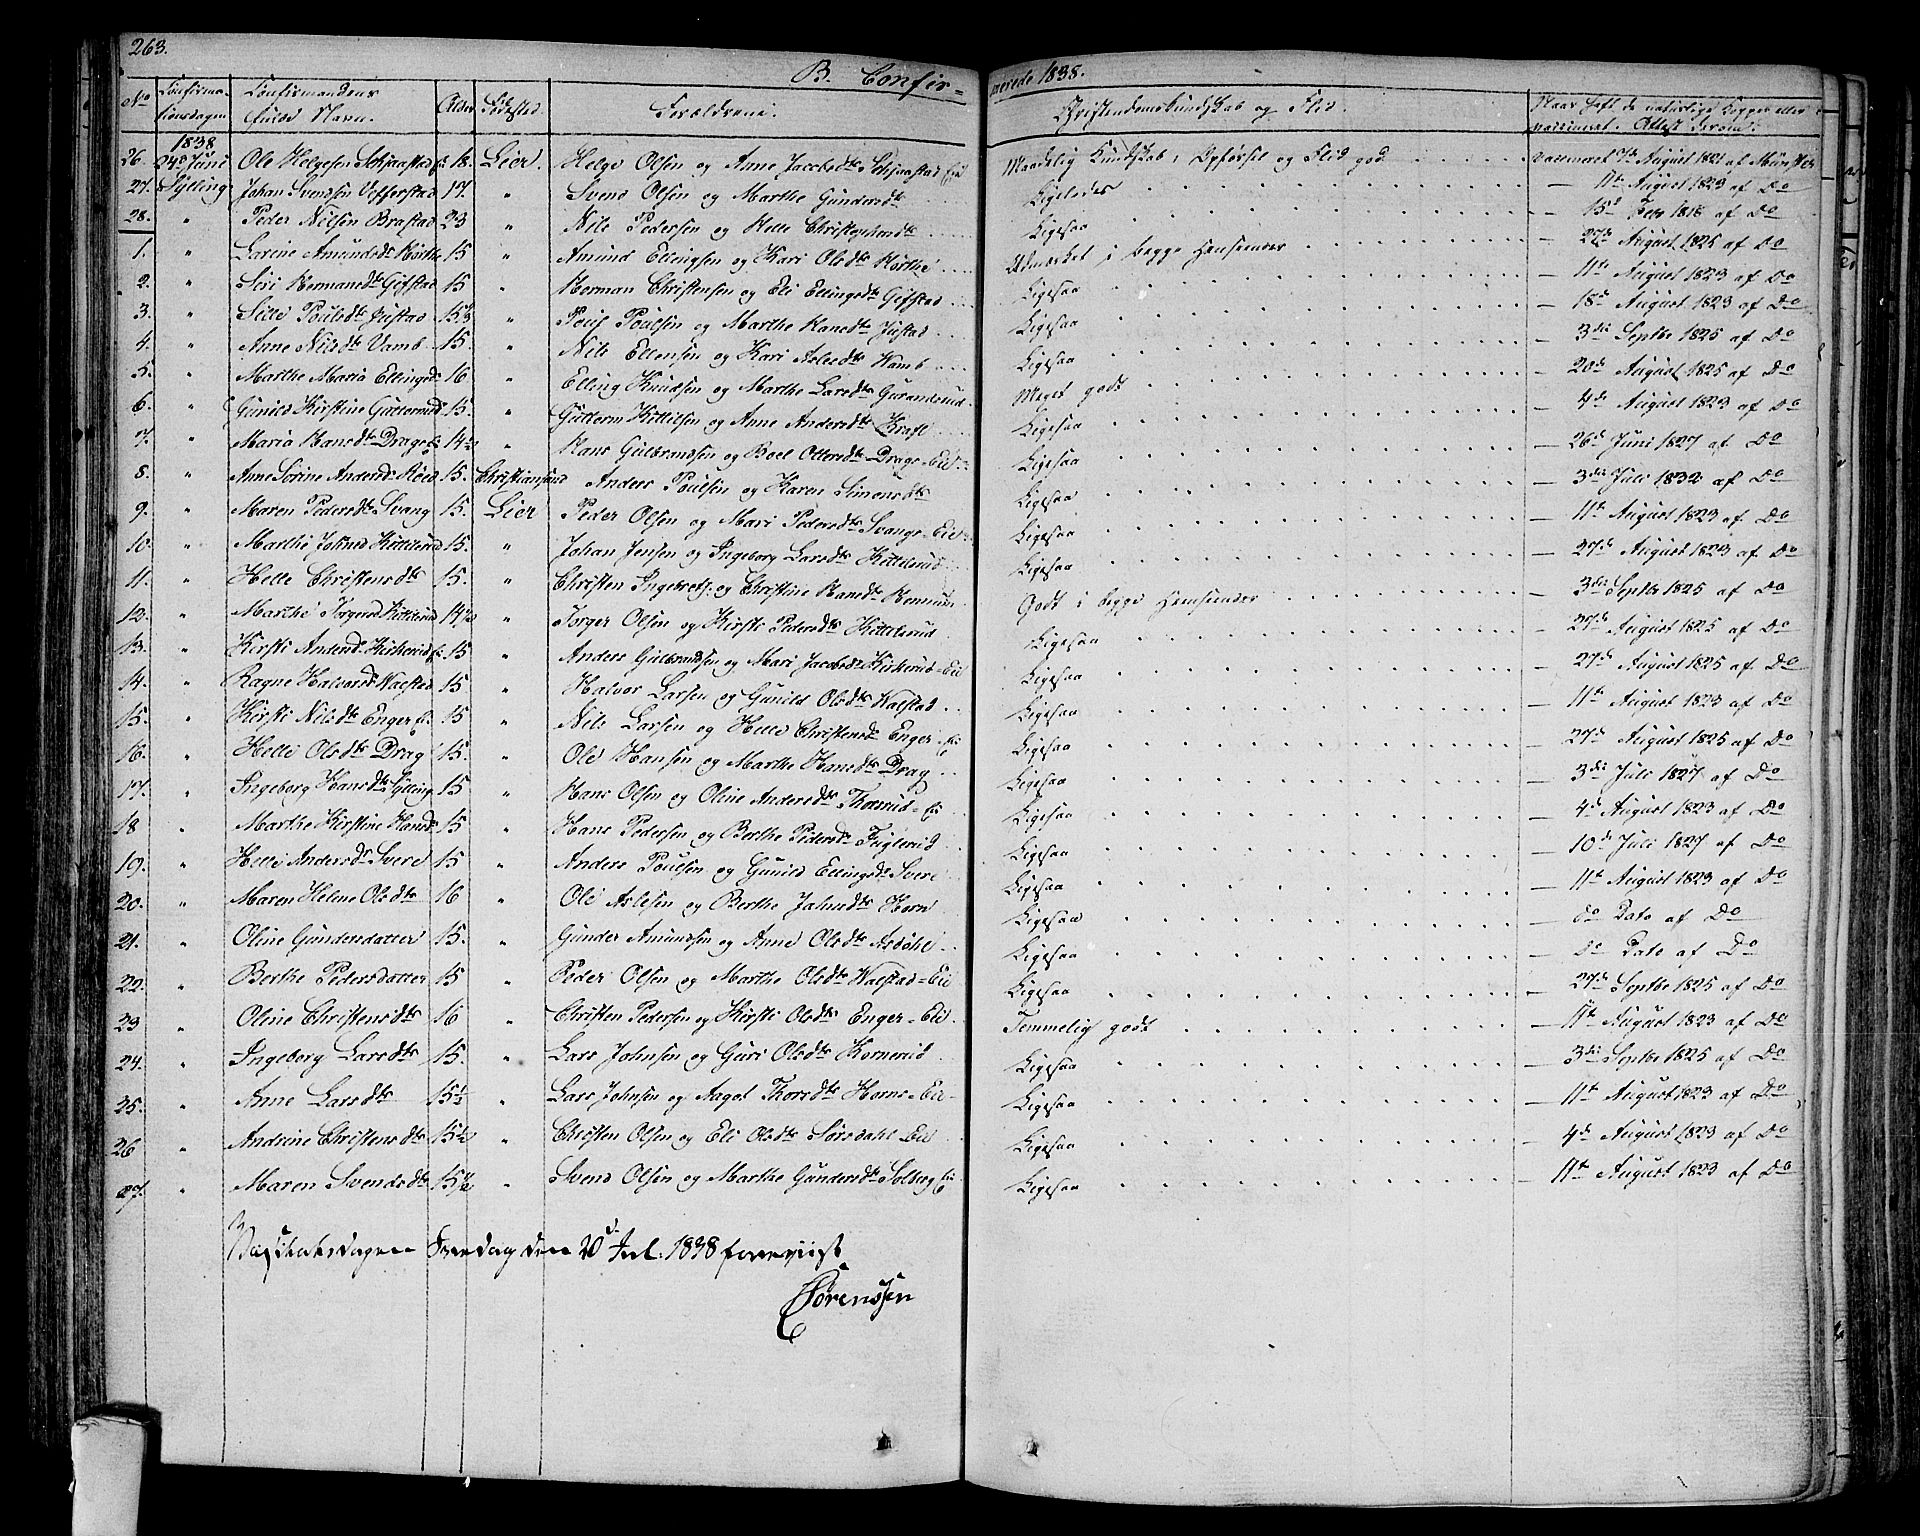 263.
B. Confirmerede 1838.
No Confirmationsdagen Confirmandens fulde Navn. Alder Fødested. Forældrene. Christendomskundskab og Flid. Naar havt de naturlige Kopper eller vaccineret. Attest derom.
1838
26. 24de Juni Ole Helgesen 18. Lier. Helge Olsen og Anne Jacobsdtr Maadelig Kundskab, Opførsel og Flid god vaccineret August 1821 af
27. Sylling Johan Svendsen 17. " Svend Olsen og Marthe Gundersdtr Ligeledes — 11te August 1823 af Do
28. " Peder Nilsen Brastad 23 " Nils Pedersen og Helle Christophersdtr Ligesaa — 15d Febr 1818 af Do
1. " Larine Amundsdtr Hørthe 15 " Amund Ellingsen og Kari Olsdtr Hørthe Udmærket i begge Henseender — 27de August 1825 af Do
2. " Siri Hermansdtr Gifstad 15 " Herman Christensen og Eli Ellingsdtr Gifstad Ligesaa — 11te August 1823 af Do
3. " Justad 15½ " Poul Poulsen og Marthe Hansdtr Justad Ligesaa — 18d August 1823 af Do
4. " Anne Nilsdtr Vamb 15 " Nils Ellensen og Kari Wamb Ligesaa — 3die Septbr 1825 af Do
5. " Marthe Maria Ellingsd 16 " Elling Knudsen og Marthe Larsdtr Meget godt — 20de August 1825 af Do
6. " Gunild Kirstine Guttormsd 15. " Guttorm Kittilsen og Anne Andersdtr Kraft Ligesaa — 4de August 1823 af Do
7. " Maria Hansdtr Drags 14½ " Hans Gulbrandsen og Boel Ottersdtr Drags Eie Ligesaa — 26d Juni 1827 af Do
8. " Anne Sorine Andersd 15. Christiansand Anders Poulsen og Karen Simensdtr Ligesaa — 3die Juli 1832 af Do
9. " Maren Pedersdtr Svang 15. Lier Peder Olsen og Mari Pedersdtr Svangs-Eie Ligesaa — 11te August 1823 af Do
10. " Marthe Johnsd Kittilsrud 15. " Johan Jensen og Ingeborg Larsdtr Kittelsrud Ligesaa — 27de August 1823 af Do
11. " Helle Christensdtr 15. " Christen Ingebretsn. og Christine Hansdtr Hennum Ligesaa — 3die Septbr 1825 af Do
12. " Marthe Torgersd Kittilsrud 14½ " Torger Olsen og Kirsti Pedersdtr Kittelsrud Godt i begge Henseender — 27de August 1825 af Do
13. " Kirsti Andersd Kirkerud 15 " Anders Gulbrandsen og Mari Jacobsdtr Kirkerud-Eie Ligesaa — 27de August 1825 af Do
14. " Ragne Halvorsd Walstad 15 " Halvor Larsen og Gunild Olsdtr Walstad Ligesaa — 11te August 1823 af Do
15. " Kirsti Nilsdtr Enger Ei 15 " Nils Larsen og Helle Christensdtr Enger-Ei Ligesaa — 27de August 1825 af Do
16. " Helle Olsdtr Drag 15. " Ole Hansen og Marthe Hansdtr Drag Ligesaa — 3die Juli 1827 af Do
17. " Ingeborg Hansdtr Sylling 15 " Hans Olsen og Oline Andersdtr Thorsrud-Ei Ligesaa — 4de August 1823 af Do
18 " Marthe Kirstine Hansd 15 " Hans Pedersen og Berthe Pedersdtr Fuglerud Ligesaa — 10de Juli 1827 af Do
19. " Helle Andersdtr Svere 15 " Anders Poulsen og Gunild Ellingsdtr Svere Ligesaa — 11te August 1823 af Do
20. " Maren Helene Olsdtr 16 " Ole Aslesen og Berthe Horn Ligesaa — do Dato af Do
21. " Oline Gundersdatter 15. " Gunder Amundsen og Anne Olsdtr Ligesaa — do Dato af Do
22. " Berthe Pedersdatter 15 " Peder Olsen og Marthe Olsdtr Walstad-Eie Ligesaa — 27de Septbr 1825 af Do
23 " Oline Christensdtr 16 " Christen Pedersen og Kirsti Olsdtr Enger-Eie Temmelig godt — 11te August 1823 af Do
24. " Ingeborg Larsdtr 15. " Lars Johnsen og Guri Olsdtr Kornerud Ligesaa — 3die Septbr 1825 af Do
25. " Anne Larsdtr 15½ " Lars Johnsen og Aagot Thorsdtr Horns-Eie Ligesaa — 11te August 1823 af Do
26 " Andrine Christensdtr 15½ " Christen Olsen og Eli Olsdtr Sørsdahl Eie Ligesaa — 4de August 1823 af Do
27. " Maren Svendsdtr 15½ " Svend Olsen og Marthe Gundersdtr Solberg Ei Ligesaa — 11te August 1823 af Do
Fredag den 20d Jul: 1838 foreviist
Sørenssen